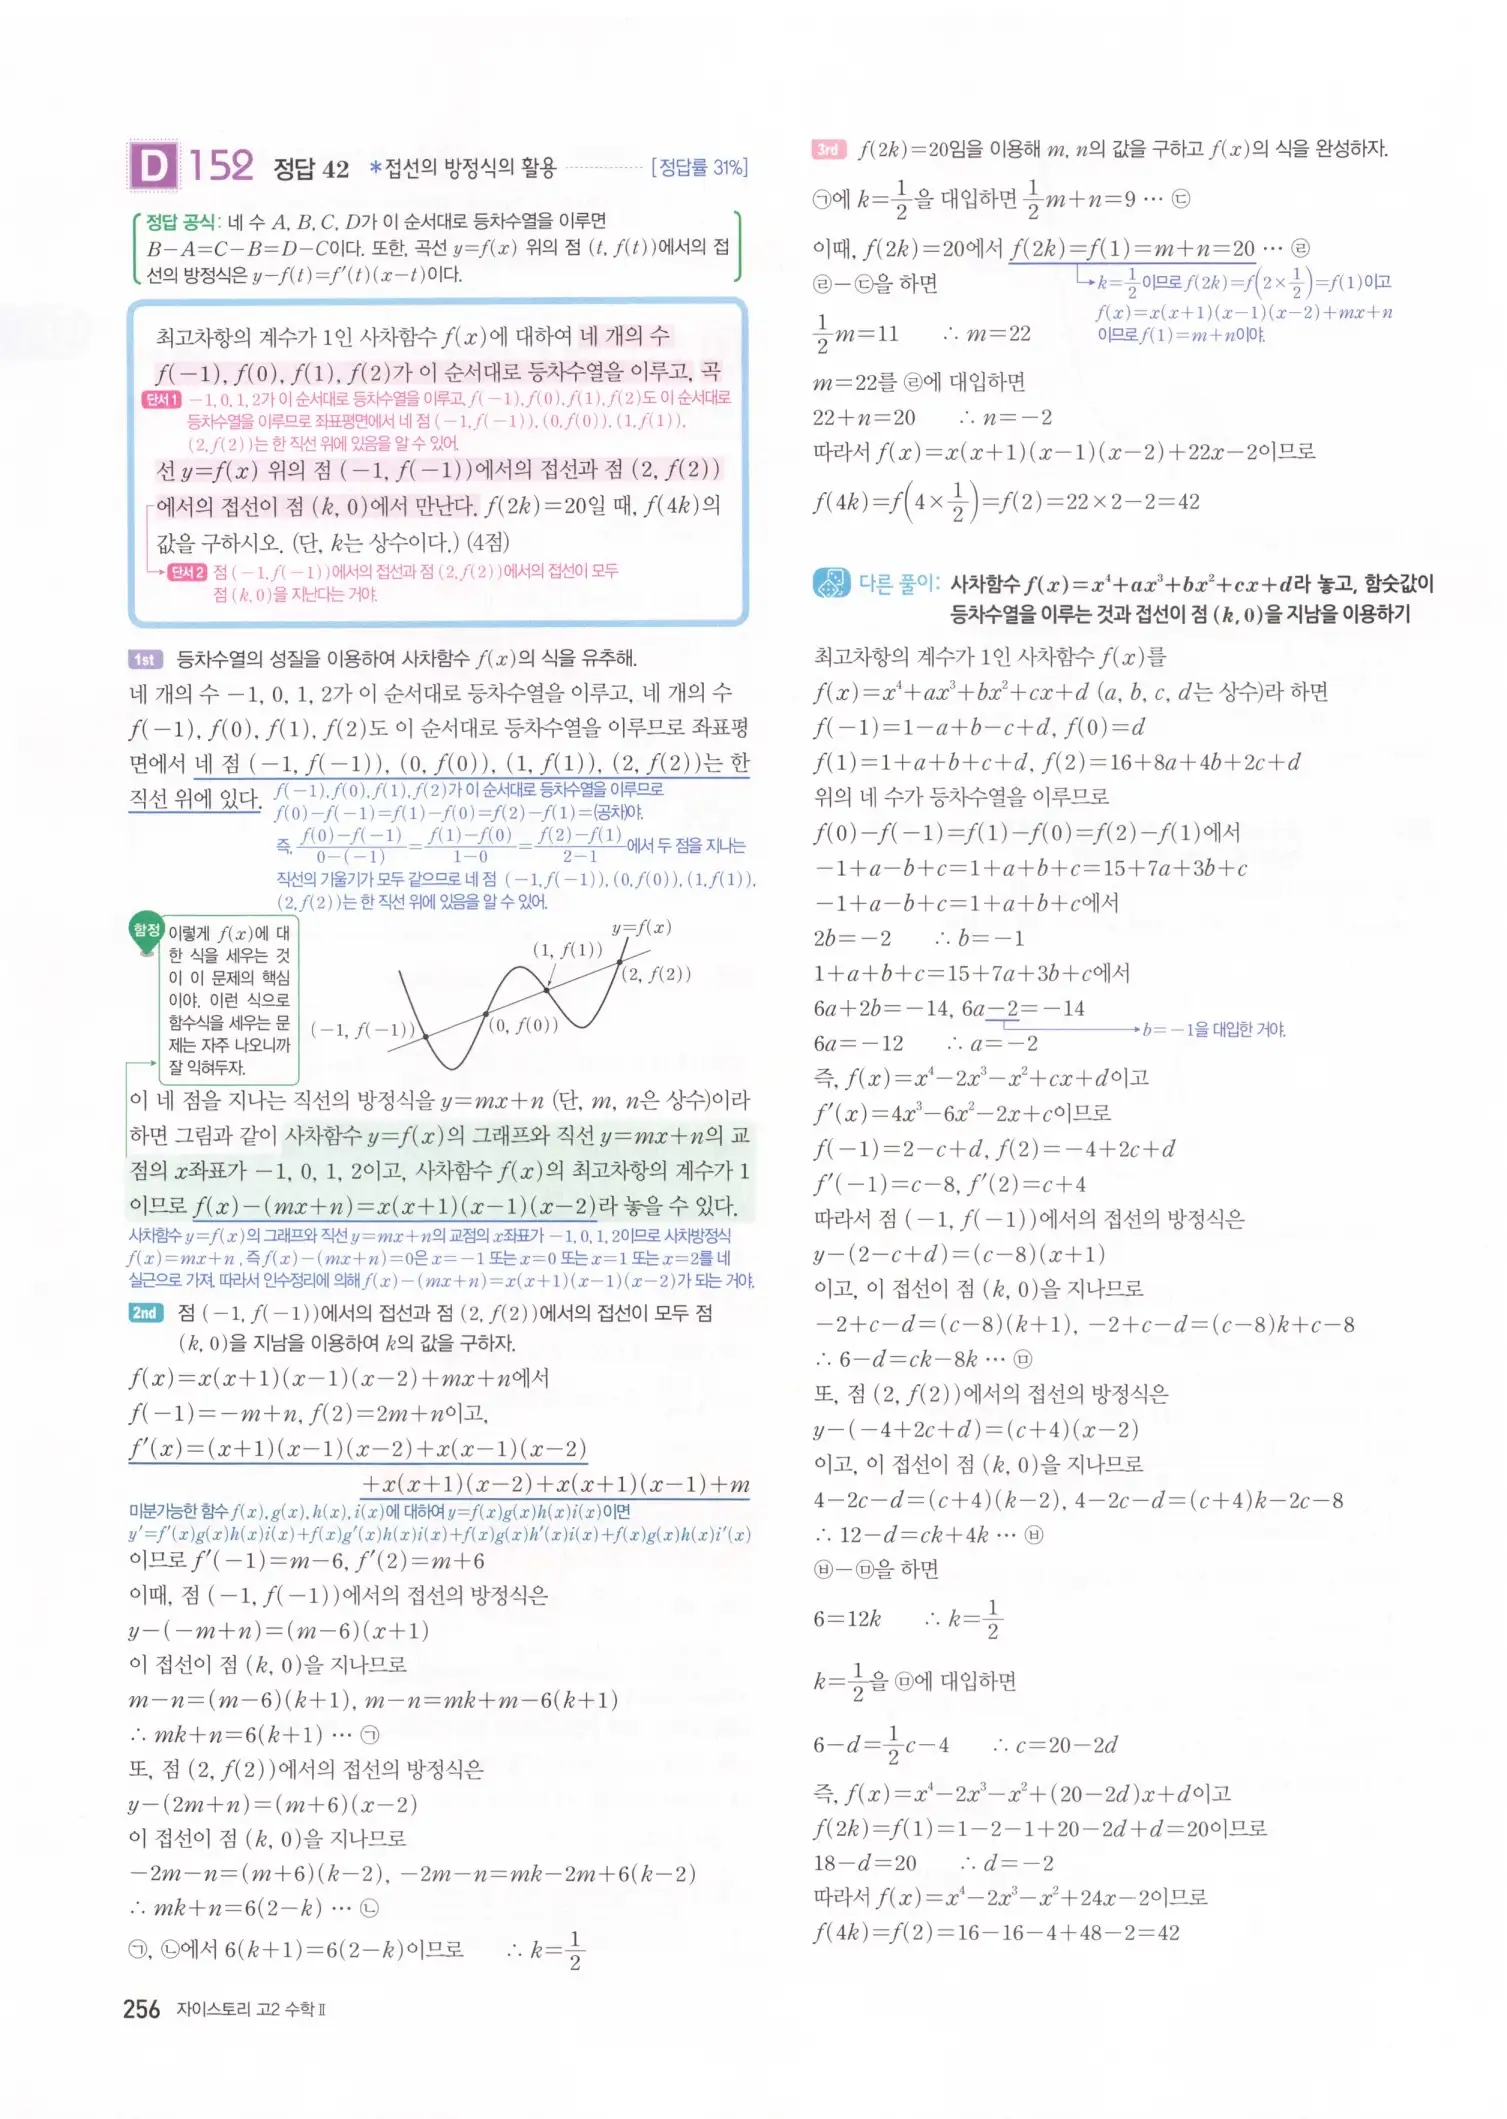 D 152 정답 42 *접선의 방정식의 활용 [정답률 31%]
정답 공식: 네 수 A, B, C, D가 이 순서대로 등차수열을 이루면
B-A=C-B=D-C이다. 또한, 곡선 y=f(x) 위의 점 (t, f(t))에서의 접
선의 방정식은 y-f(t)=f'(t)(x-t)이다.
최고차항의 계수가 1인 사차함수 f(x)에 대하여 네 개의 수
f(-1), f(0), f(1), f(2)가 이 순서대로 등차수열을 이루고, 곡
단서1 -1, 0, 1, 2가 이 순서대로 등차수열을 이루고, f(-1), f(0), f(1), f(2)도 이 순서대로
등차수열을 이루므로 좌표평면에서 네 점 (-1, f(-1)), (0, f(0)), (1, f(1)),
(2, f(2))는 한 직선 위에 있음을 알 수 있어.
선 y=f(x) 위의 점 (-1, f(-1))에서의 접선과 점 (2, f(2))
에서의 접선이 점 (k, 0)에서 만난다. f(2k)=20일 때, f(4k)의
값을 구하시오. (단, k는 상수이다.) (4점)
단서2 점 (-1, f(-1))에서의 접선과 점 (2, f(2))에서의 접선이 모두
점 (k, 0)을 지난다는 거야.
1st 등차수열의 성질을 이용하여 사차함수 f(x)의 식을 유추해.
네 개의 수 -1, 0, 1, 2가 이 순서대로 등차수열을 이루고, 네 개의 수
f(-1), f(0), f(1), f(2)도 이 순서대로 등차수열을 이루므로 좌표평
면에서 네 점 (-1, f(-1)), (0, f(0)), (1, f(1)), (2, f(2))는 한
직선 위에 있다.
f(-1), f(0), f(1), f(2)가 이 순서대로 등차수열을 이루므로
f(0)-f(-1)=f(1)-f(0)=f(2)-f(1)=(공차)야.
즉, f(0)-f(-1)/0-(-1) = f(1)-f(0)/1-0 = f(2)-f(1)/2-1 에서 두 점을 지나는
직선의 기울기가 모두 같으므로 네 점 (-1, f(-1)), (0, f(0)), (1, f(1)),
(2, f(2))는 한 직선 위에 있음을 알 수 있어.
함정
이렇게 f(x)에 대
한 식을 세우는 것
이 이 문제의 핵심
이야. 이런 식으로
함수식을 세우는 문
제는 자주 나오니까
잘 익혀두자.
y=f(x)
(1, f(1))
(2, f(2))
(-1, f(-1))
(0, f(0))
이 네 점을 지나는 직선의 방정식을 y=mx+n (단, m, n은 상수)이라
하면 그림과 같이 사차함수 y=f(x)의 그래프와 직선 y=mx+n의 교
점의 x좌표가 -1, 0, 1, 2이고, 사차함수 f(x)의 최고차항의 계수가 1
이므로 f(x)-(mx+n)=x(x+1)(x-1)(x-2)라 놓을 수 있다.
사차함수 y=f(x)의 그래프와 직선 y=mx+n의 교점의 x좌표가 -1, 0, 1, 2이므로 사차방정식
f(x)=mx+n, 즉 f(x)-(mx+n)=0은 x=-1 또는 x=0 또는 x=1 또는 x=2를 네
실근으로 가져. 따라서 인수정리에 의해 f(x)-(mx+n)=x(x+1)(x-1)(x-2)가 되는 거야.
2nd 점 (-1, f(-1))에서의 접선과 점 (2, f(2))에서의 접선이 모두 점
(k, 0)을 지남을 이용하여 k의 값을 구하자.
f(x)=x(x+1)(x-1)(x-2)+mx+n에서
f(-1)=-m+n, f(2)=2m+n이고,
f'(x)=(x+1)(x-1)(x-2)+x(x-1)(x-2)
+x(x+1)(x-2)+x(x+1)(x-1)+m
미분가능한 함수 f(x), g(x), h(x), i(x)에 대하여 y=f(x)g(x)h(x)i(x)이면
y'=f'(x)g(x)h(x)i(x)+f(x)g'(x)h(x)i(x)+f(x)g(x)h'(x)i(x)+f(x)g(x)h(x)i'(x)
이므로 f'(-1)=m-6, f'(2)=m+6
이때, 점 (-1, f(-1))에서의 접선의 방정식은
y-(-m+n)=(m-6)(x+1)
이 접선이 점 (k, 0)을 지나므로
m-n=(m-6)(k+1), m-n=mk+m-6(k+1)
∴ mk+n=6(k+1) … ㉠
또, 점 (2, f(2))에서의 접선의 방정식은
y-(2m+n)=(m+6)(x-2)
이 접선이 점 (k, 0)을 지나므로
-2m-n=(m+6)(k-2), -2m-n=mk-2m+6(k-2)
∴ mk+n=6(2-k) … ㉡
㉠, ㉡에서 6(k+1)=6(2-k)이므로 ∴ k=1/2
256 자이스토리 고2 수학Ⅱ
3rd f(2k)=20임을 이용해 m, n의 값을 구하고 f(x)의 식을 완성하자.
㉠에 k=1/2을 대입하면 1/2m+n=9 … ㉢
이때, f(2k)=20에서 f(2k)=f(1)=m+n=20 … ㉣
㉣-㉢을 하면
k=1/2이므로 f(2k)=f(2×1/2)=f(1)이고
f(x)=x(x+1)(x-1)(x-2)+mx+n
이므로 f(1)=m+n이야.
1/2m=11 ∴ m=22
m=22를 ㉣에 대입하면
22+n=20 ∴ n=-2
따라서 f(x)=x(x+1)(x-1)(x-2)+22x-2이므로
f(4k)=f(4×1/2)=f(2)=22×2-2=42
다른 풀이: 사차함수 f(x)=x⁴+ax³+bx²+cx+d라 놓고, 함숫값이
등차수열을 이루는 것과 접선이 점 (k, 0)을 지남을 이용하기
최고차항의 계수가 1인 사차함수 f(x)를
f(x)=x⁴+ax³+bx²+cx+d (a, b, c, d는 상수)라 하면
f(-1)=1-a+b-c+d, f(0)=d
f(1)=1+a+b+c+d, f(2)=16+8a+4b+2c+d
위의 네 수가 등차수열을 이루므로
f(0)-f(-1)=f(1)-f(0)=f(2)-f(1)에서
-1+a-b+c=1+a+b+c=15+7a+3b+c
-1+a-b+c=1+a+b+c에서
2b=-2 ∴ b=-1
1+a+b+c=15+7a+3b+c에서
6a+2b=-14, 6a-2=-14
b=-1을 대입한 거야.
6a=-12 ∴ a=-2
즉, f(x)=x⁴-2x³-x²+cx+d이고
f'(x)=4x³-6x²-2x+c이므로
f(-1)=2-c+d, f(2)=-4+2c+d
f'(-1)=c-8, f'(2)=c+4
따라서 점 (-1, f(-1))에서의 접선의 방정식은
y-(2-c+d)=(c-8)(x+1)
이고, 이 접선이 점 (k, 0)을 지나므로
-2+c-d=(c-8)(k+1), -2+c-d=(c-8)k+c-8
∴ 6-d=ck-8k … ㉤
또, 점 (2, f(2))에서의 접선의 방정식은
y-(-4+2c+d)=(c+4)(x-2)
이고, 이 접선이 점 (k, 0)을 지나므로
4-2c-d=(c+4)(k-2), 4-2c-d=(c+4)k-2c-8
∴ 12-d=ck+4k … ㉥
㉥-㉤을 하면
6=12k ∴ k=1/2
k=1/2을 ㉤에 대입하면
6-d=1/2c-4 ∴ c=20-2d
즉, f(x)=x⁴-2x³-x²+(20-2d)x+d이고
f(2k)=f(1)=1-2-1+20-2d+d=20이므로
18-d=20 ∴ d=-2
따라서 f(x)=x⁴-2x³-x²+24x-2이므로
f(4k)=f(2)=16-16-4+48-2=42